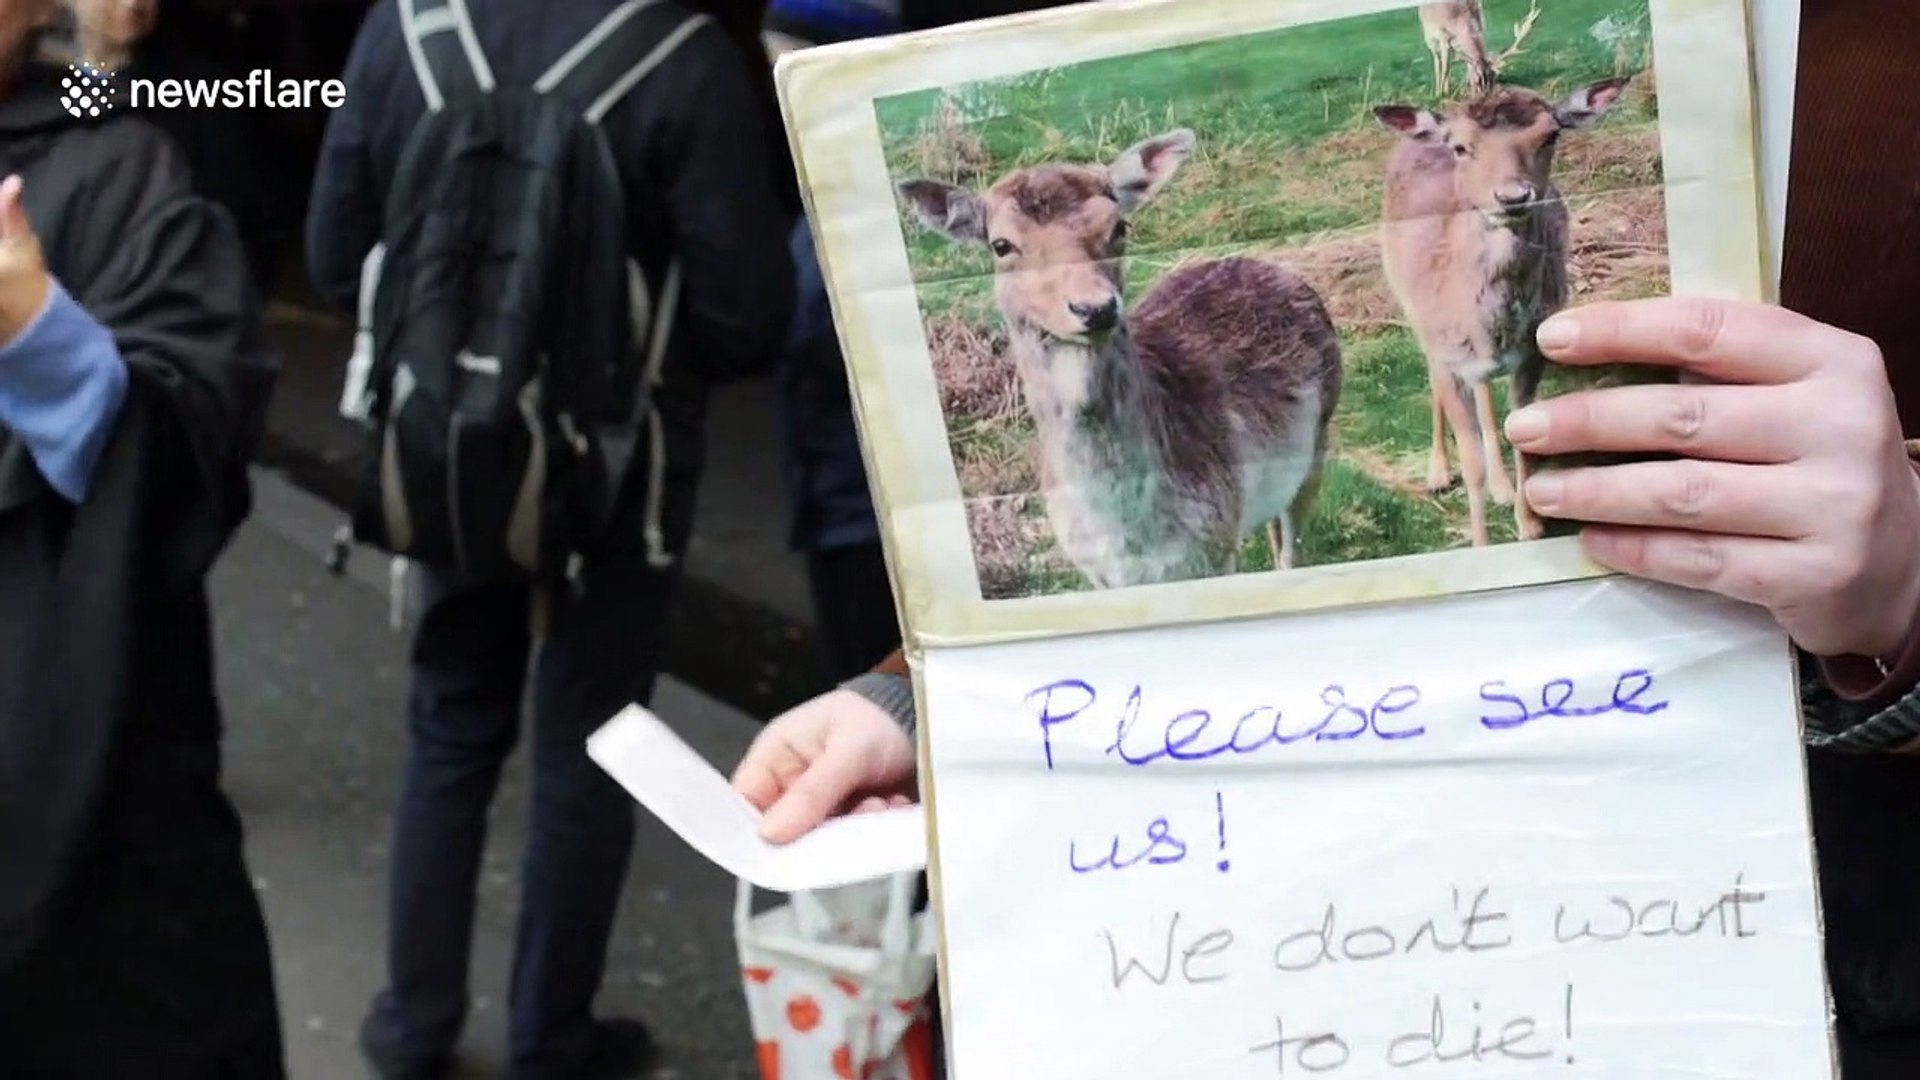 newsflare
Please see
us!
We don't want
to die!